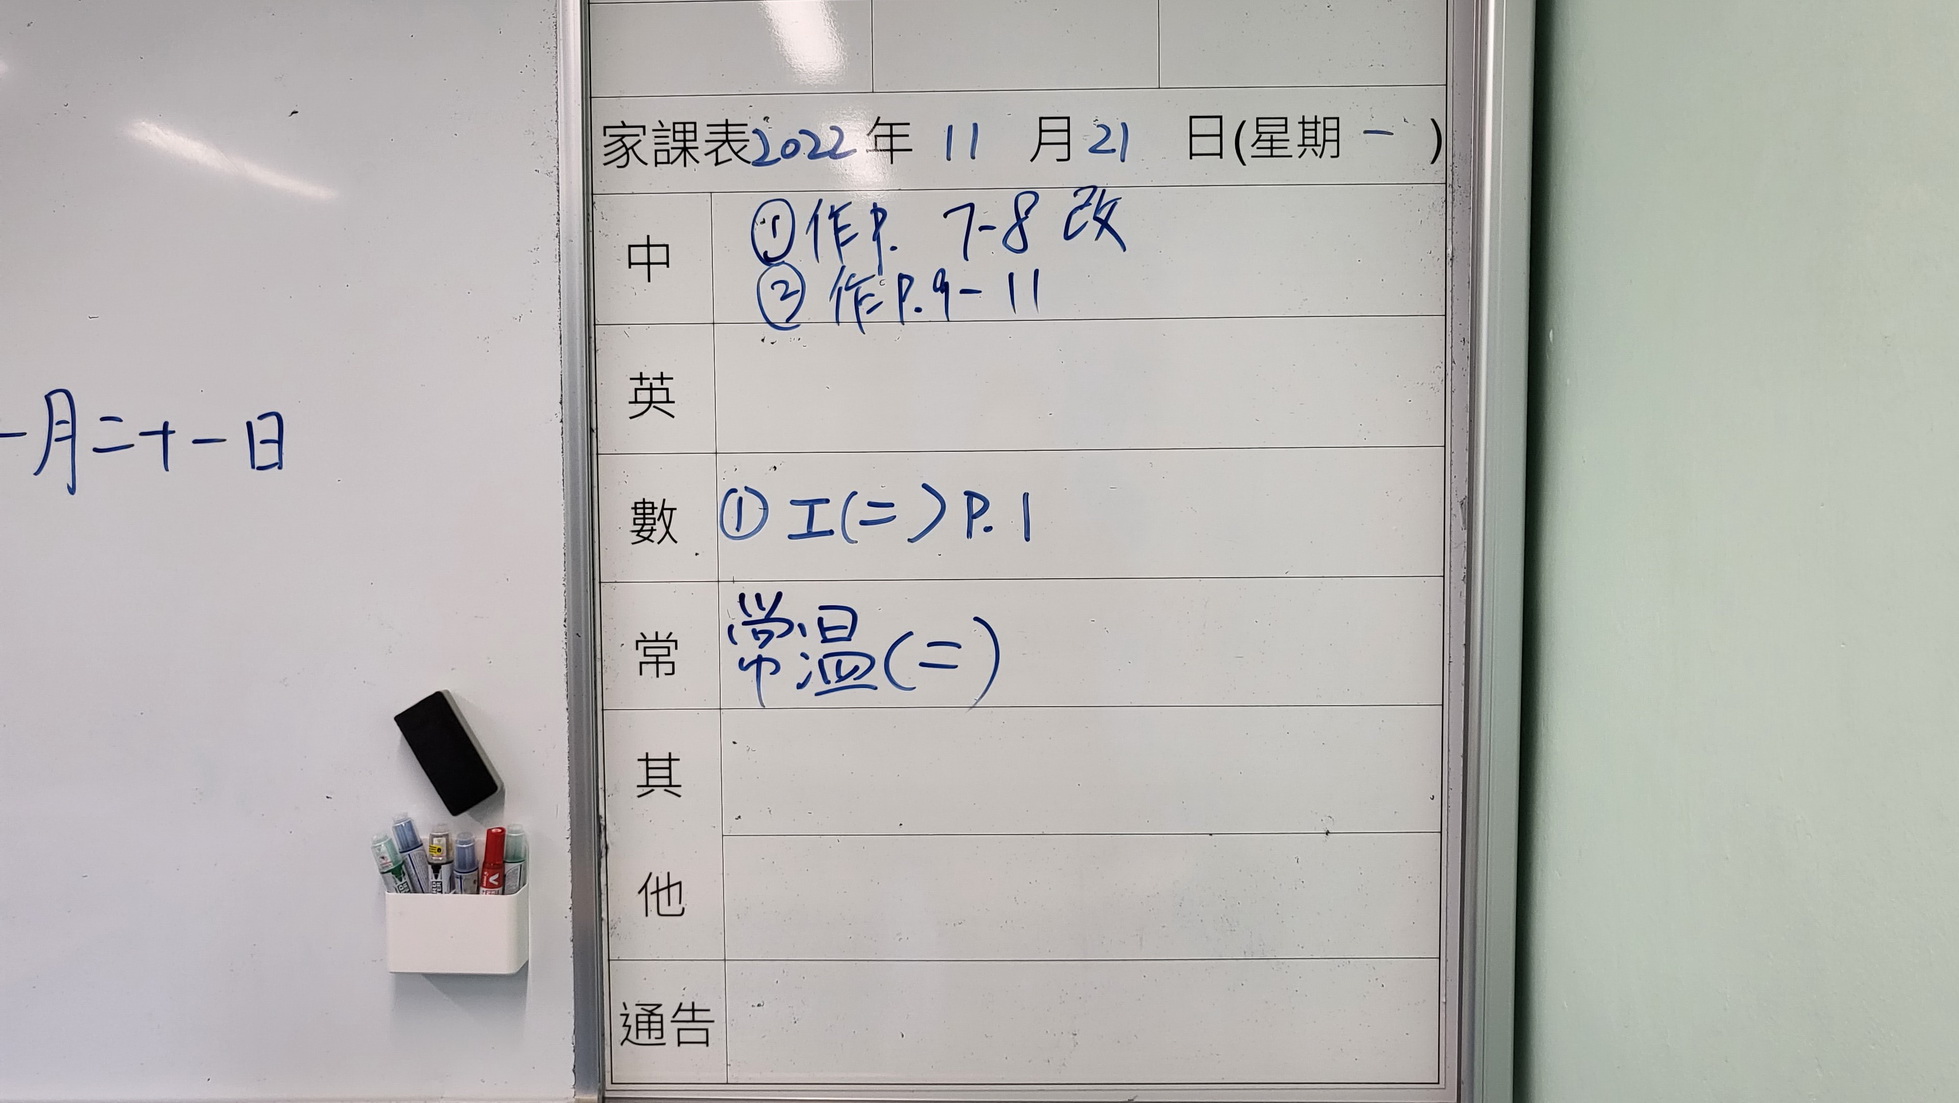 一月二十一日
家課表2022年 11 月21 日(星期一)
中 ①作P. 7-8 改
②作P.9-11
英
數 ①工(二)P.1
常 常溫(二)
其
他
通告